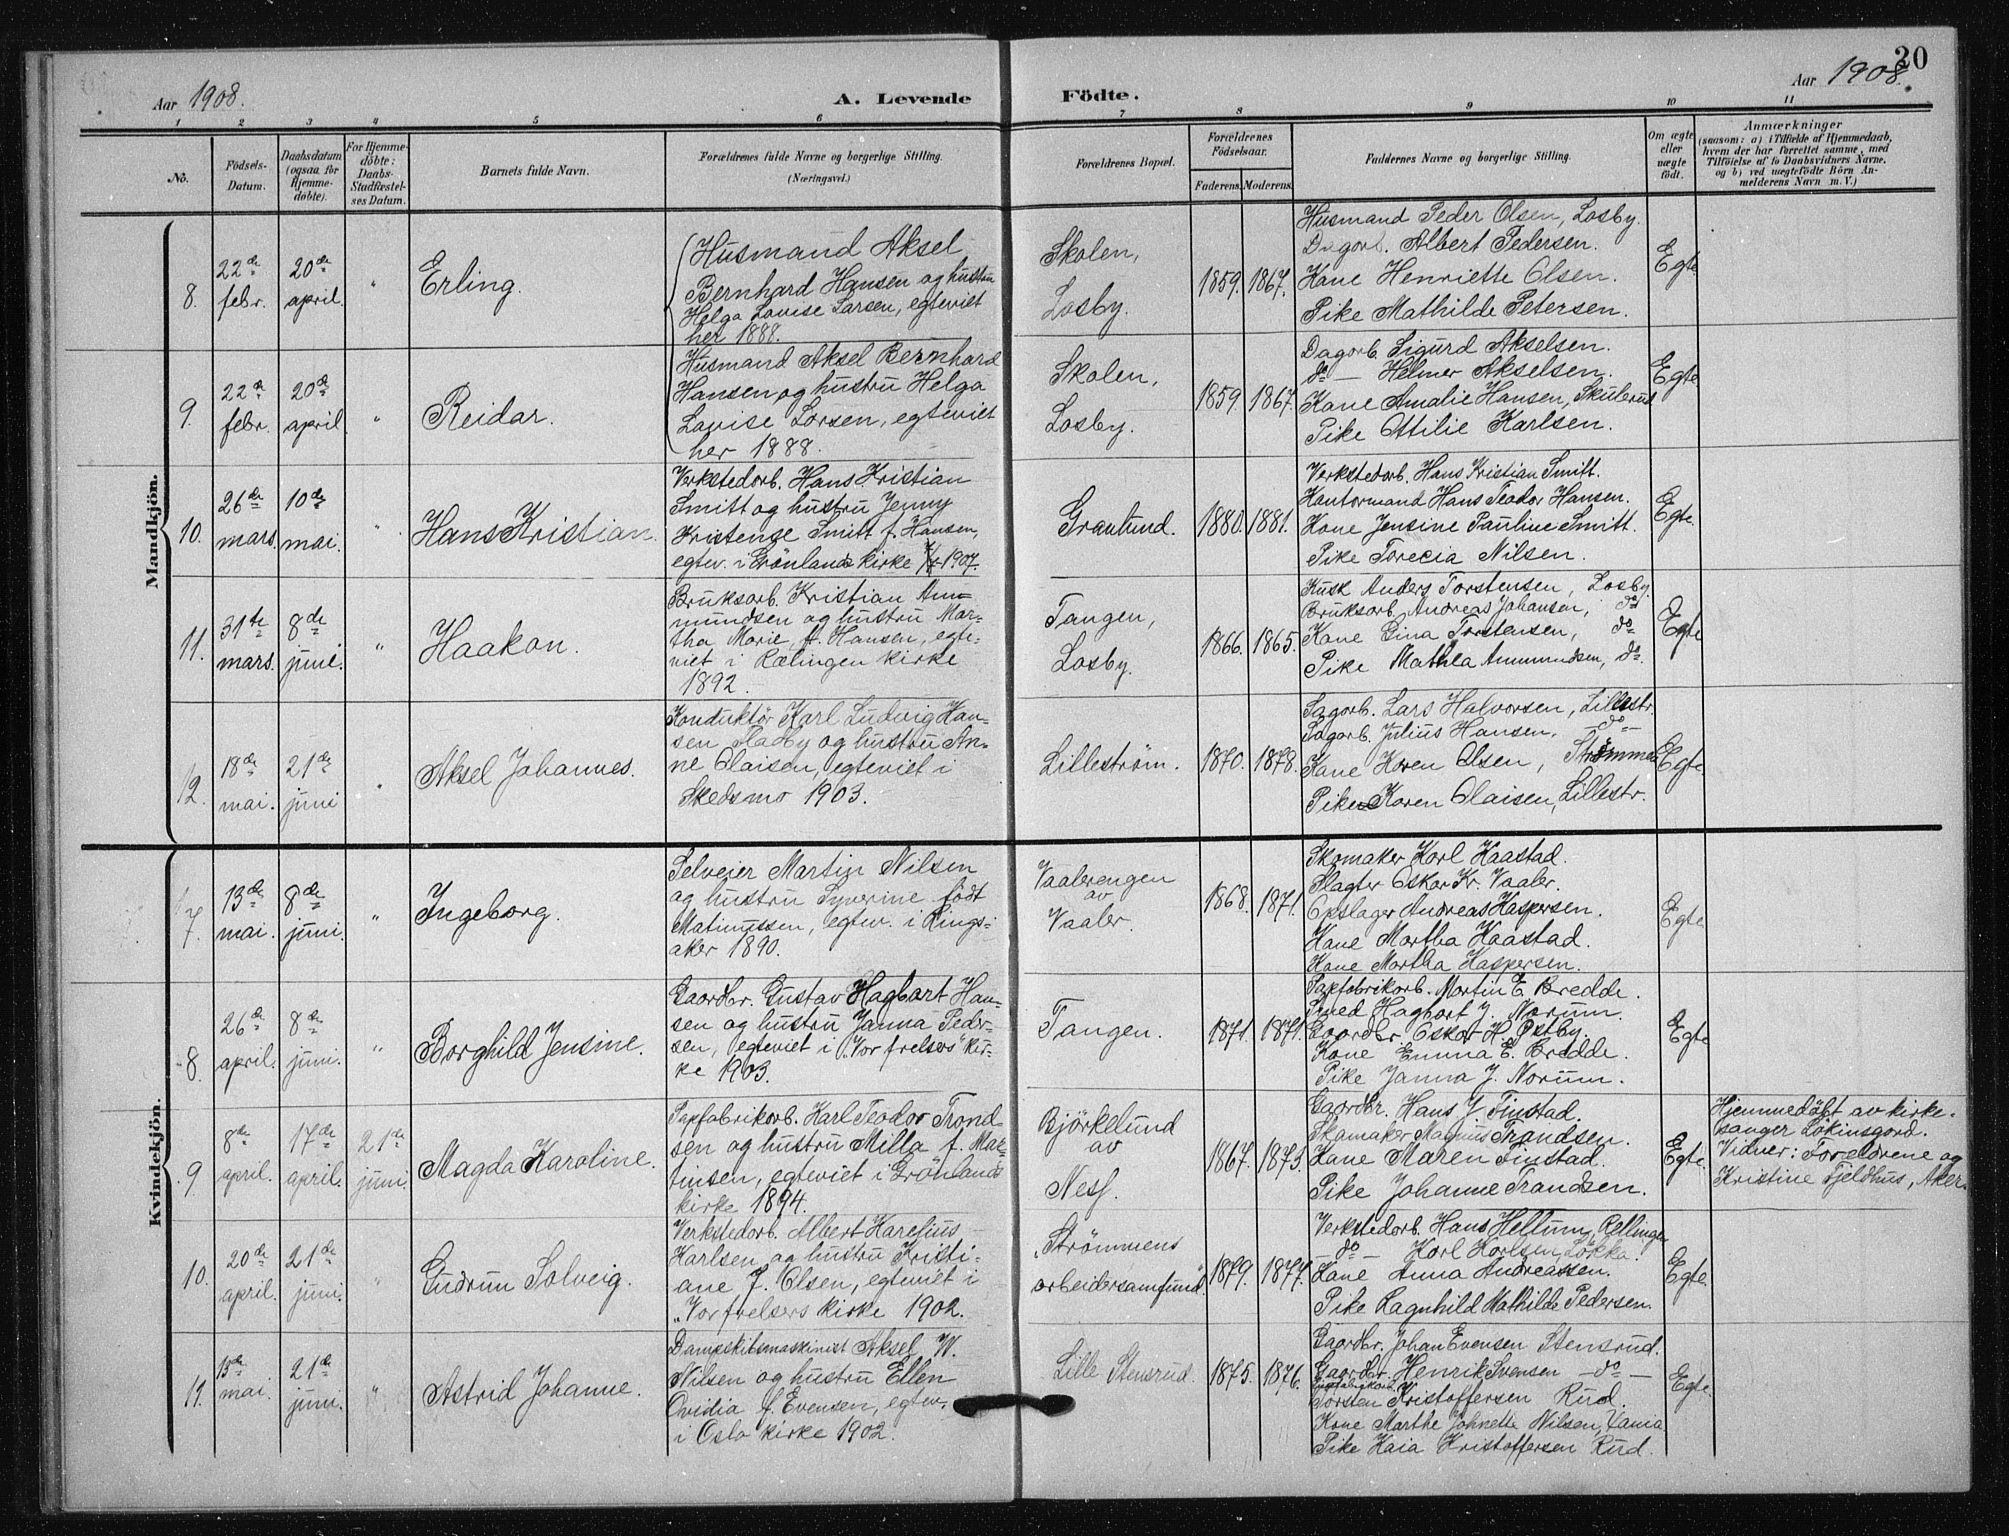 20
Aar 1908.
A. Levende Födte.
Aar 1908.
1 2 3 4 5 6 7 8 9 10 11
No.
Födsels-
Datum.
Daabsdatum
(ogsaa for
Hjemme-
döbte).
For Hjemme-
döbte:
Daabs-
Stadfæstel-
ses Datum.
Barnets fulde Navn.
Forældrenes fulde Navne og borgerlige Stilling.
(Næringsvei.)
Forældrenes Bopæl.
Forældrenes
Födselsaar.
Faderens. Moderens.
Faddernes Navne og borgerlige Stilling.
Om ægte
eller
uægte
födt.
Anmærkninger
(saasom: a) i Tilfælde af Hjemmedaab,
hvem der har forrettet samme, med
Tilföielse af to Daabsvidners Navne,
og b) ved uægtefödte Börn An-
melderens Navn m. V.)
Mandkjön.
8.
22de
febr.
20de
april.
"
Erling.
Husmand Aksel
Bernhard Hansen og hustru
Helga Lovise Larsen, egteviet
her 1888.
Skolen,
Losby.
1859. 1867.
Husmand Peder Olsen, Losby.
Dagarb. Albert Pedersen.
Kone Henriette Olsen.
Pike Mathilde Petersen.
Egte
9.
22de
febr.
20de
april.
"
Reidar.
Husmand Aksel Bernhard
Hansen og hustru Helga
Lovise Larsen, egteviet
her 1888.
Skolen,
Losby.
1859. 1867.
Dagarb. Sigurd Akselsen.
do — Helmer Akselsen.
Kone Amalie Hansen, Skulerud
Pike Ottilie Karlsen.
Egte
10.
26de
mars.
10de
mai.
"
Hans Kristian.
Verkstedarb. Hans Kristian
Smitt og hustru Jenny
Kristense Smitt f. Hansen,
egtev. i Grönlands kirke 1907.
Granlund.
1880. 1881.
Verkstedarb. Hans Kristian Smitt.
Kontormand Hans Teodor Hansen.
Kone Jensine Pauline Smitt.
Pike Torecia Nilsen.
Egte.
11.
31te
mars.
8de
juni.
"
Haakon.
Bruksarb. Kristian Am-
mundsen og hustru Mar-
tha Marie, f. Hansen, egte-
viet i Rælingen kirke
1892.
Tangen,
Losby.
1866. 1865.
Kusk Anders Torstensen, Losby.
Bruksarb. Andreas Johansen, do
Kone Gina Torstensen, do
Pike Mathea Ammundsen, do.
Egte
12.
18de
mai.
21de
juni
"
Aksel Johannes.
Konduktör Karl Ludvig Han-
sen Sladby og hustru An-
ne Olaisen, egteviet i
Skedsmo 1903.
Lilleström.
1870. 1878.
Sagarb. Lars Halvorsen, Lillestr.
Sagarb. Julius Hansen, —do—
Kone Karen Olsen, Strömmen
Pike Karen Olaisen, Lillestr.
Egte
Kvindekjön.
7.
13de
mai.
8de
juni.
"
Ingeborg.
Selveier Martin Nilsen
og hustru Syverine födt
Matinussen, egtev. i Rings-
aker 1890.
Vaalerengen
av
Vaaler.
1868. 1871.
Skomaker Karl Haastad.
Slagter Oskar Kr. Vaaler.
Opslager Andreas Kaspersen.
Kone Martha Haastad.
Kone Martha Kaspersen.
Egte
8.
26de
april.
8de
juni.
"
Borghild Jensine.
Gaardbr. Gustav Hagbart Han-
sen og hustru Janna Peder-
sen, egteviet i "Vor frelsers" kir-
ke 1903.
Tangen.
1871. 1871.
Papfabrikarb. Martin E. Bredde.
Smed Hagbart J. Norum.
Gaardbr. Oskar H. Østby.
Kone Emma E. Bredde.
Pike Janna J. Norum.
Egte
9.
8de
april.
17de
april.
21de
juni.
Magda Karoline.
Papfabrikarb. Karl Teodor Trond-
sen og hustru Milla f. Mar-
tinsen, egteviet i Grönlands
kirke 1894.
Björkelund
av
Nesf.
1867. 1873.
Gaardbr. Hans J. Finstad.
Skomaker Magnus Trondsen.
Kone Maren Finstad.
Pike Johanne Trandsen.
Egte.
Hjemmedöbt av kirke-
sanger Lökinsgard.
Vidner: Foreldrene og
Kristine Fjeldhus, Aker.
10.
20de
april.
21de
juni.
"
Gudrun Solveig.
Verkstedarb. Albert Karelius
Karlsen og hustru Kristi-
ane J. Olsen, egteviet i
"Vor frelsers kirke 1902.
"Strömmens
arbeidersamfund"
1879. 1877.
Verkstedarb. Hans Hellum, Rellingen
— do — Karl Karlsen, Lökka.
Kone Anna Andreassen.
Pike Ragnhild Mathilde Pedersen.
Egte.
11.
13de
mai.
21de
juni.
"
Astrid Johanne.
Dampskibsmaskinist Aksel W.
Nilsen og hustru Ellen
Ovidia f. Evensen, egtev.
i Oslo kirke 1902.
Lille Stensrud.
1875. 1876.
Gaardbr. Johan Evensen Stensrud.
Gaardbr. Henrik Svensen —do—
Papfabrikarb.
Torsten Kristoffersen Rud.
Kone Marthe Johnette Nilsen, Xania
Pike Kaia Kristoffersen Rud.
Egte.